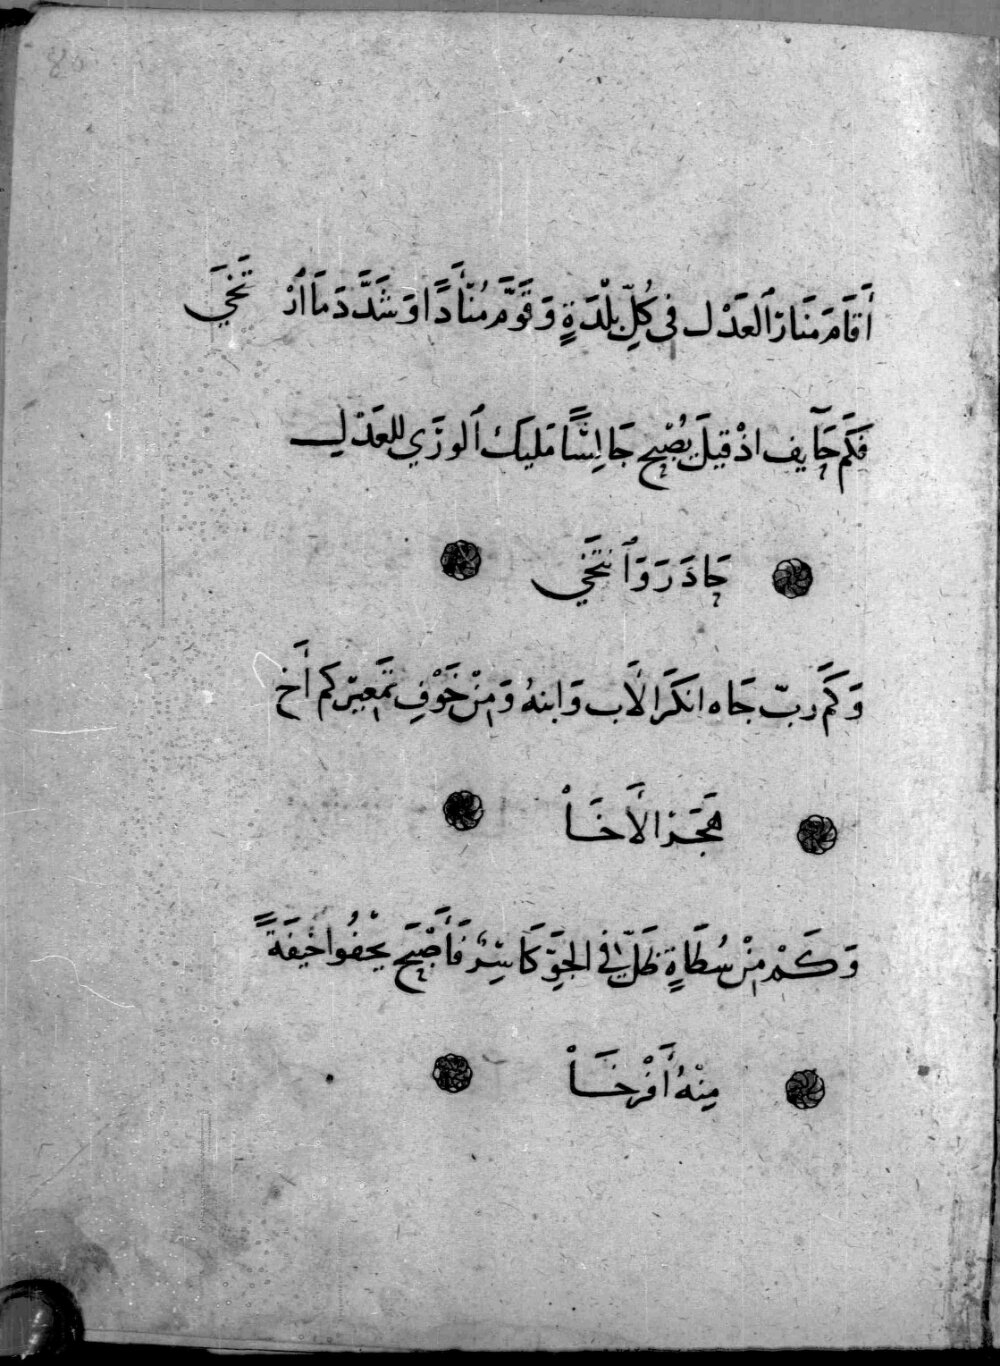 أَقَامَ مَنَارَ ٱلعَدْل فى كُلِّ بلْدَةٍ وَقَوَّمَ مُنْأَدًا وَشَدَّدَ مَا ٱرْتَخَي
فَكَم حَآيف اذْ قيلَ يُصْبح جَالِسًا مَليك ٱلورَي للعَدْلِ
حَاذَرَ وَٱنتَخَي
وَكَم ربّ جَاه انكَرَ الأَب وَابنهُ وَمِنْ خَوْفِ تَمعِيرِ كم أَخ
هَجَرَ الأَخَا
وَكَمْ مِنْ سُطَاةٍ ظَلَّ في الجَوِّ كَاسِرٌ فَأَصْبَح يَحْفُوا خِيفَةً
مِنْهُ أَفْرخَا